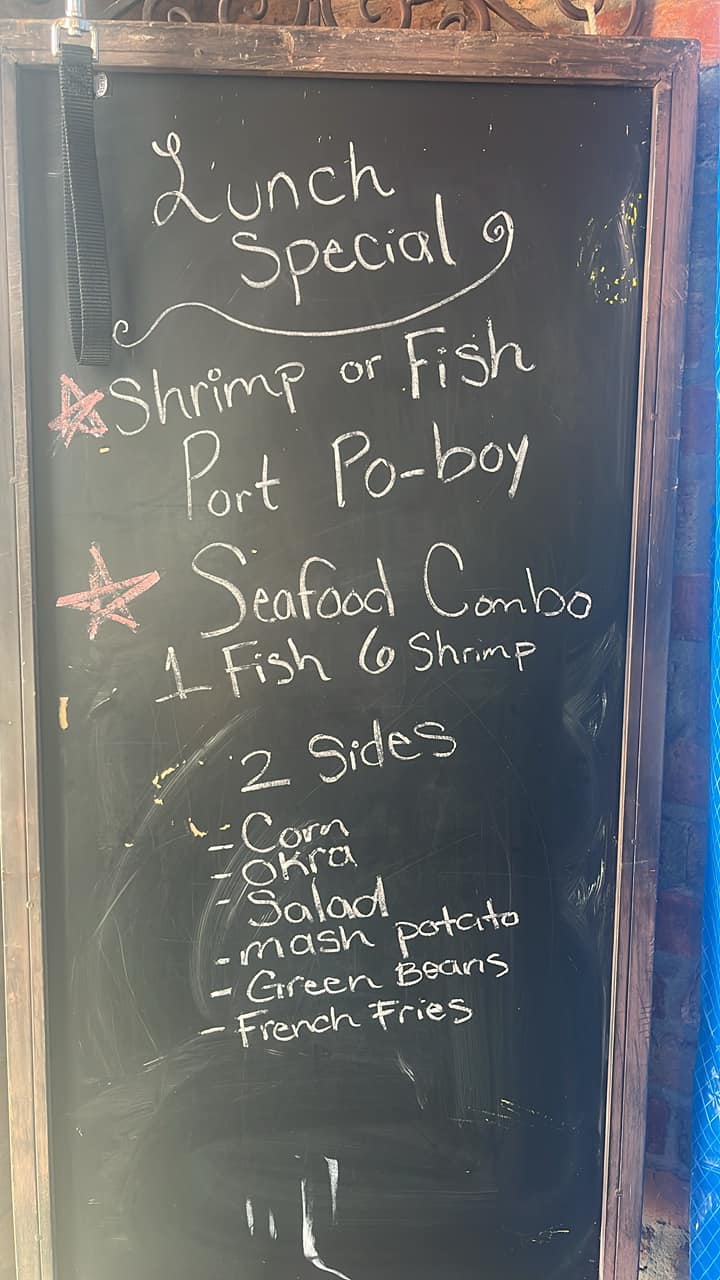 Lunch
Special
Shrimp or Fish
Port Po-boy
Seafood Combo
1 Fish 6 Shrimp
2 Sides
- Corn
- Okra
- Salad
- mash potato
- Green Beans
- French Fries